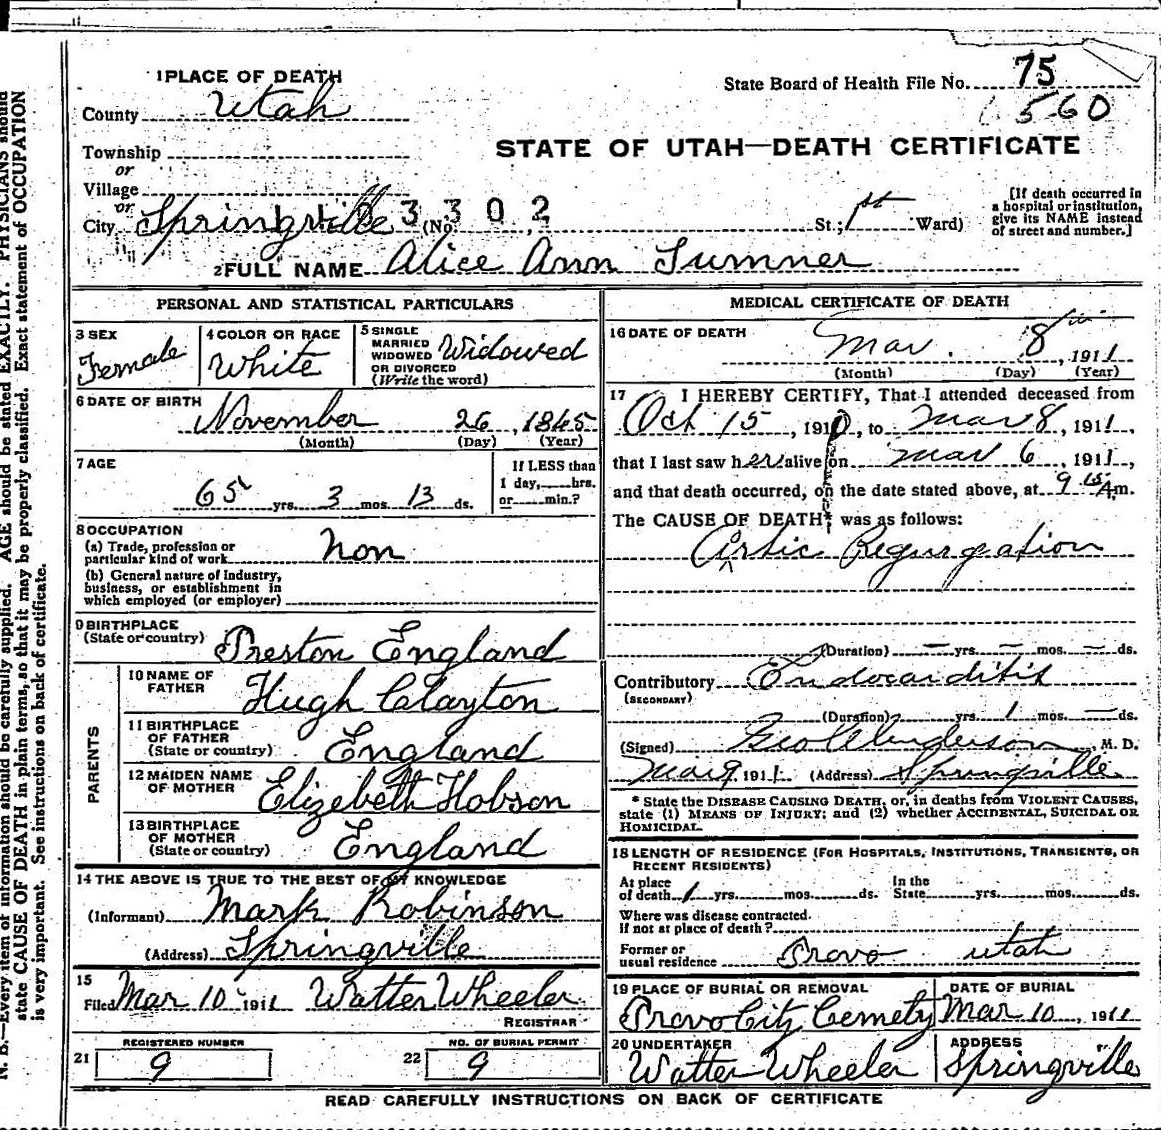 1 PLACE OF DEATH
State Board of Health File No. 75
560
County Utah
STATE OF UTAH—DEATH CERTIFICATE
Township
or
Village
or
City Springville 3302 (No. St.; 1st Ward)
[If death occurred in
a hospital or institution,
give its NAME instead
of street and number.]
2 FULL NAME Alice Ann Sumner
PERSONAL AND STATISTICAL PARTICULARS
3 SEX
Female
4 COLOR OR RACE
White
5 SINGLE
MARRIED
WIDOWED
OR DIVORCED
(Write the word)
Widowed
6 DATE OF BIRTH
November 26, 1845
(Month) (Day) (Year)
7 AGE
65 yrs. 3 mos. 13 ds.
If LESS than
1 day, hrs.
or min.?
8 OCCUPATION
(a) Trade, profession or
particular kind of work Non
(b) General nature of industry,
business, or establishment in
which employed (or employer)
9 BIRTHPLACE
(State or country) Preston England
PARENTS
10 NAME OF
FATHER Hugh Clayton
11 BIRTHPLACE
OF FATHER
(State or country) England
12 MAIDEN NAME
OF MOTHER Elizebeth Hobson
13 BIRTHPLACE
OF MOTHER
(State or country) England
14 THE ABOVE IS TRUE TO THE BEST OF MY KNOWLEDGE
(Informant) Mark Robinson
(Address) Springville
15
Filed Mar 10 1911 Watter Wheeler
REGISTRAR
REGISTERED NUMBER
21 9
NO. OF BURIAL PERMIT
22 9
MEDICAL CERTIFICATE OF DEATH
16 DATE OF DEATH
Mar. 8th, 1911
(Month) (Day) (Year)
17 I HEREBY CERTIFY, That I attended deceased from
Oct 15, 1910, to Mar 8, 1911,
that I last saw her alive on Mar 6, 1911,
and that death occurred, on the date stated above, at 9 15 A m.
The CAUSE OF DEATH* was as follows:
Artic Regurgation
(Duration) — yrs. — mos. — ds.
Contributory Endocarditis
(SECONDARY)
(Duration) yrs. 1 mos. — ds.
(Signed) Geo Anderson, M. D.
Mar 9 1911 (Address) Springville
* State the DISEASE CAUSING DEATH, or, in deaths from VIOLENT CAUSES,
state (1) MEANS OF INJURY; and (2) whether ACCIDENTAL, SUICIDAL OR
HOMICIDAL.
18 LENGTH OF RESIDENCE (FOR HOSPITALS, INSTITUTIONS, TRANSIENTS, OR
RECENT RESIDENTS)
At place
of death 1 yrs. mos. ds.
In the
State yrs. mos. ds.
Where was disease contracted.
if not at place of death?
Former or
usual residence Provo Utah
19 PLACE OF BURIAL OR REMOVAL
Provo City Cemety
DATE OF BURIAL
Mar 10, 1911
20 UNDERTAKER
Watter Wheeler
ADDRESS
Springville
READ CAREFULLY INSTRUCTIONS ON BACK OF CERTIFICATE
N. B.—Every item of information should be carefully supplied. AGE should be stated EXACTLY. PHYSICIANS should
state CAUSE OF DEATH in plain terms, so that it may be properly classified. Exact statement of OCCUPATION
is very important. See instructions on back of certificate.